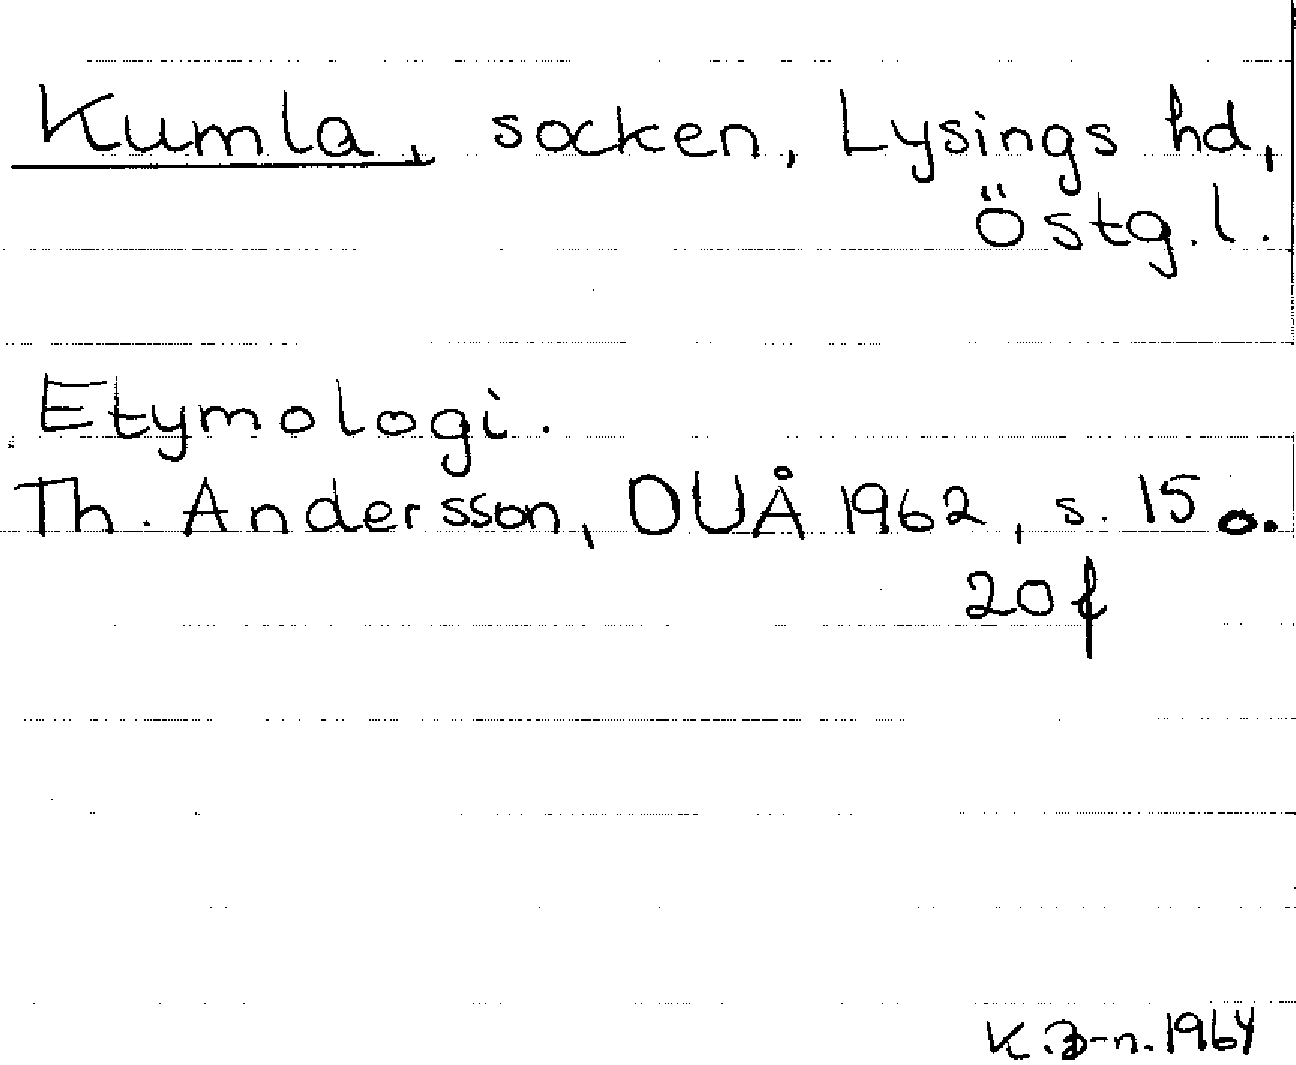 Kumla, socken, Lysings hd,
Östg.l.
Etymologi.
Th. Andersson, OUÅ 1962, s. 15 o.
20 f
K.B-n. 1964